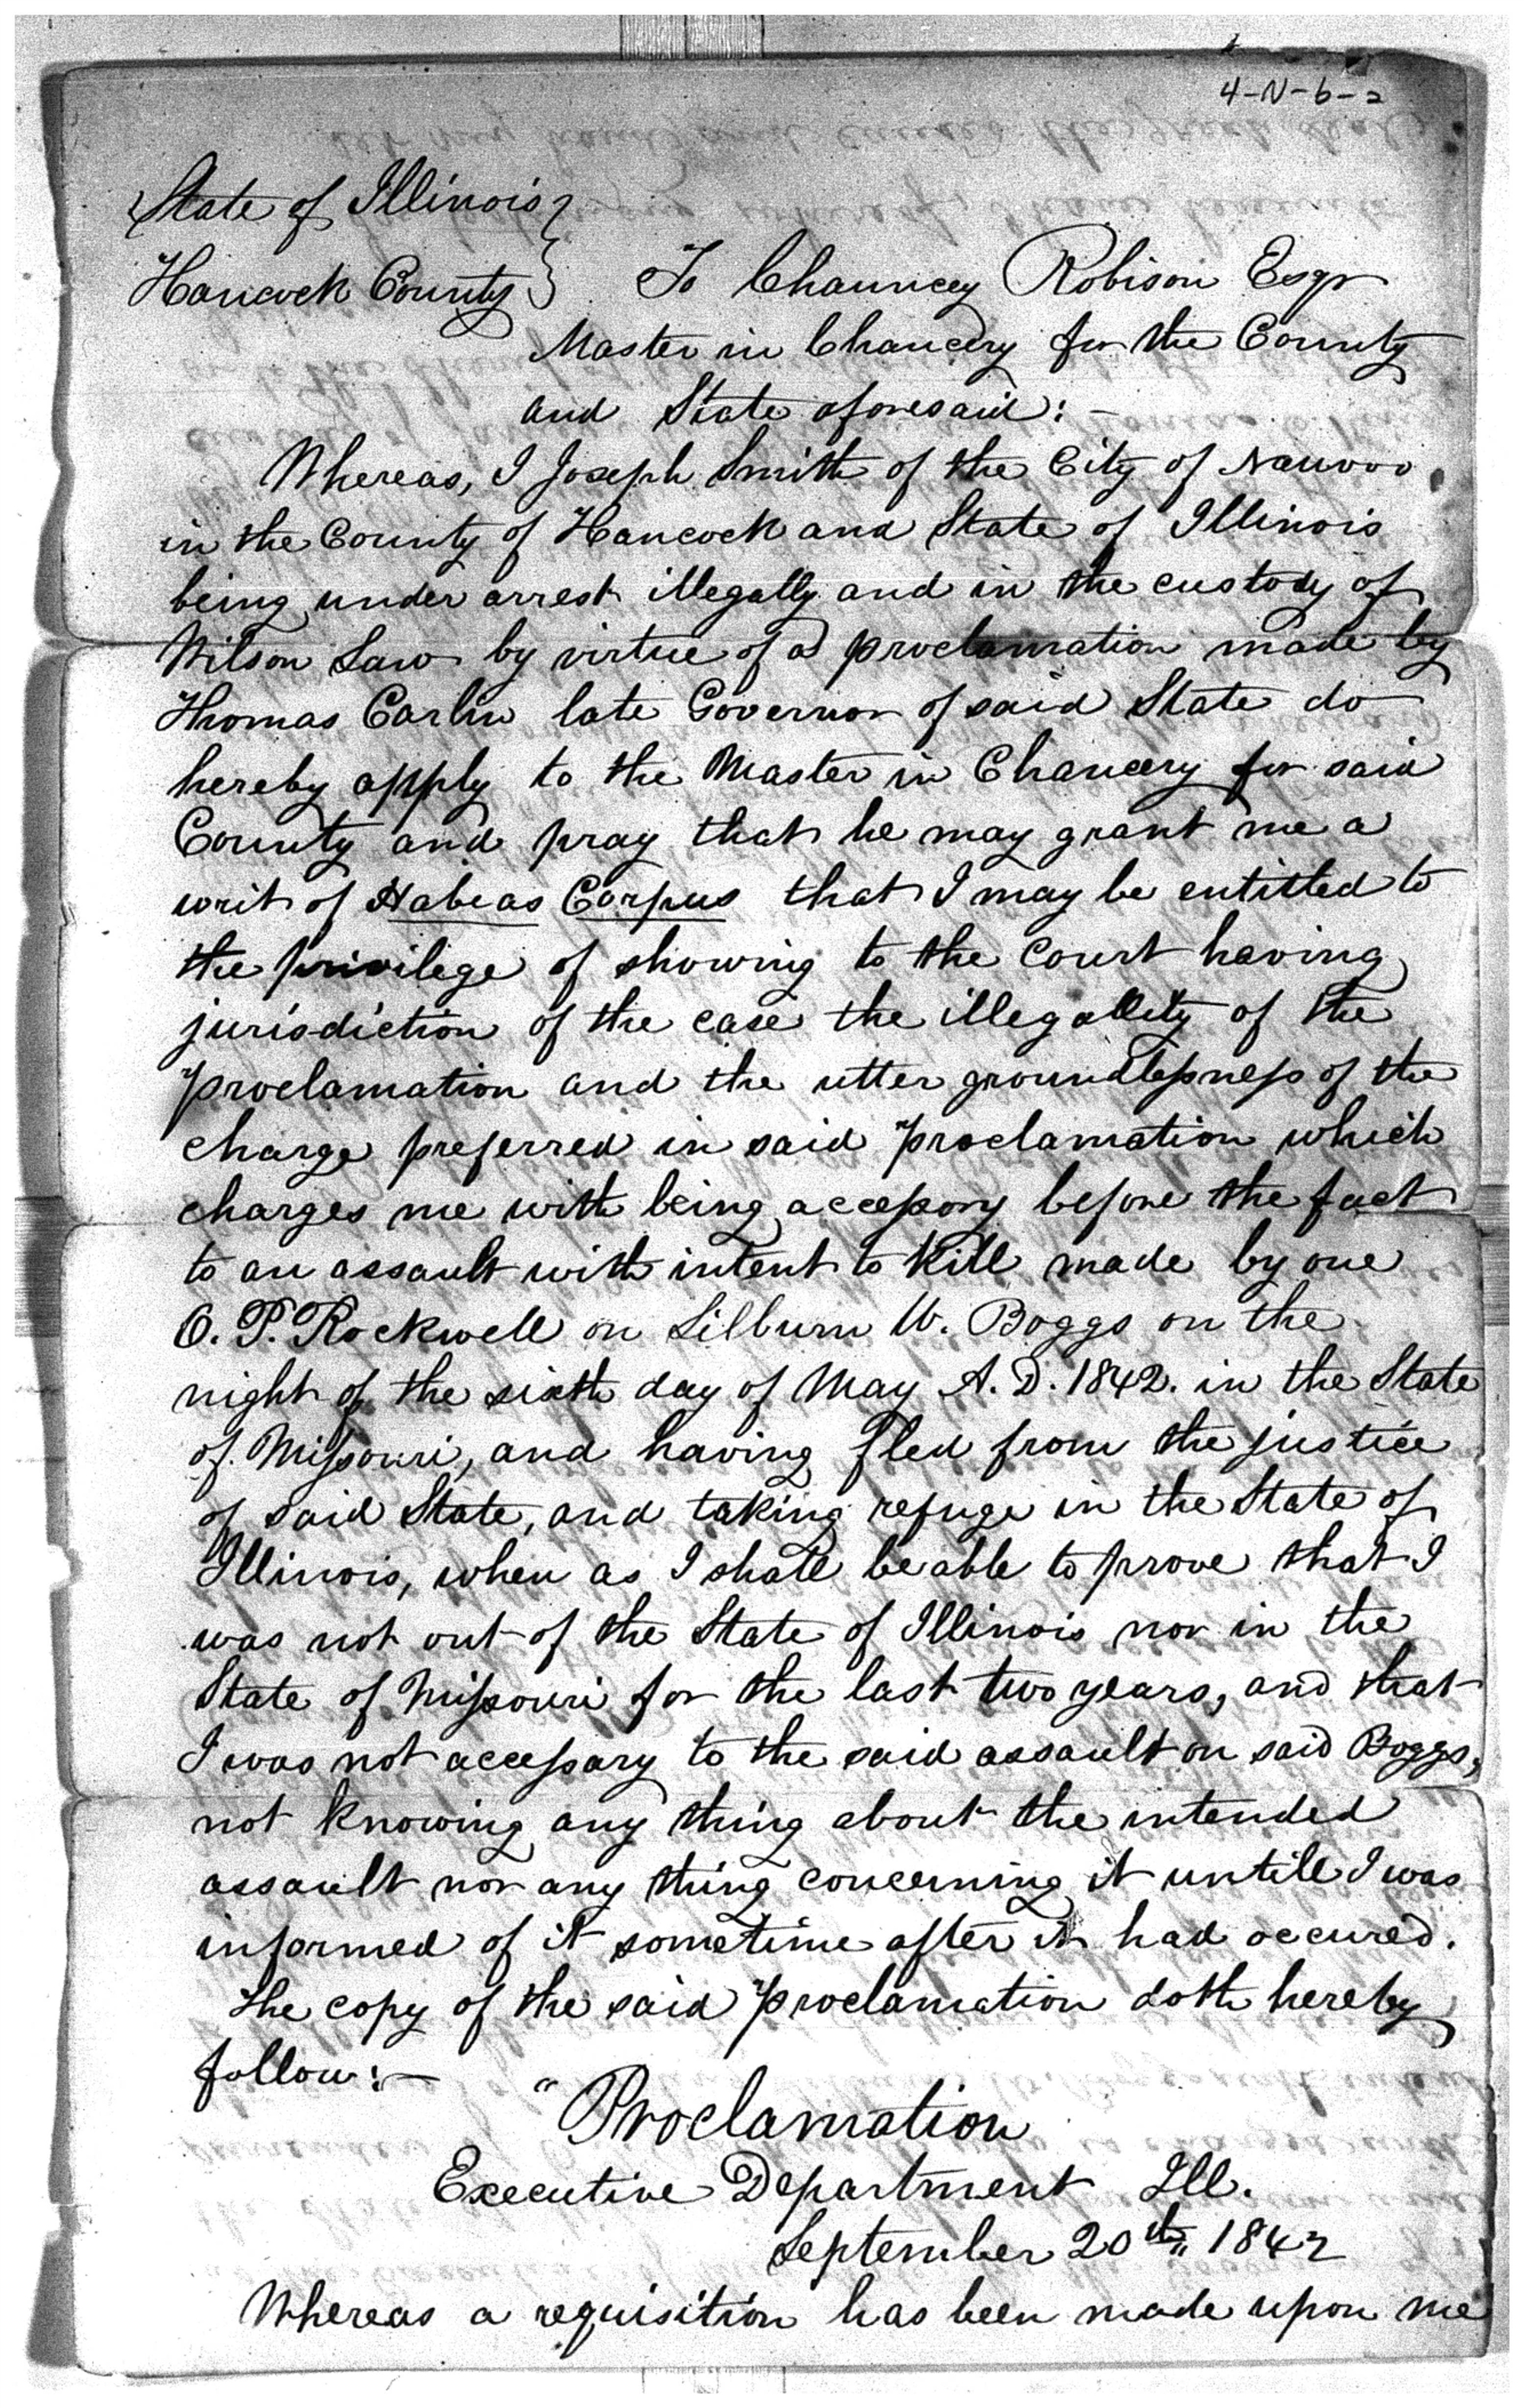 4-N-6-2
State of Illinois }
Hancock County } To Chauncey Robison Esqr
Master in Chancery for the County
and State aforesaid: -
Whereas, I Joseph Smith of the City of Nauvoo
in the County of Hancock and State of Illinois
being under arrest illegally and in the custody of
Wilson Law by virtue of a proclamation made by
Thomas Carlin late Governor of said State do
hereby apply to the Master in Chancery for said
County and pray that he may grant me a
writ of Habeas Corpus that I may be entitled to
the privilege of showing to the Court having
jurisdiction of the case the illegallity of the
proclamation and the utter groundlessness of the
charge preferred in said proclamation which
charges me with being accessory before the fact
to an assault with intent to kill made by one
O. P. Rockwell on Lilburn W. Boggs on the
night of the sixth day of May A. D. 1842. in the State
of Missouri, and having fled from the justice
of said State, and taking refuge in the State of
Illinois, when as I shall be able to prove that I
was not out of the State of Illinois nor in the
State of Missouri for the last two years, and that
I was not accessary to the said assault on said Boggs,
not knowing any thing about the intended
assault nor any thing concerning it untill I was
informed of it sometime after it had occured.
The copy of the said proclamation doth hereby
follow: —
"Proclamation
Executive Department Ill.
September 20th 1842
Whereas a requisition has been made upon me